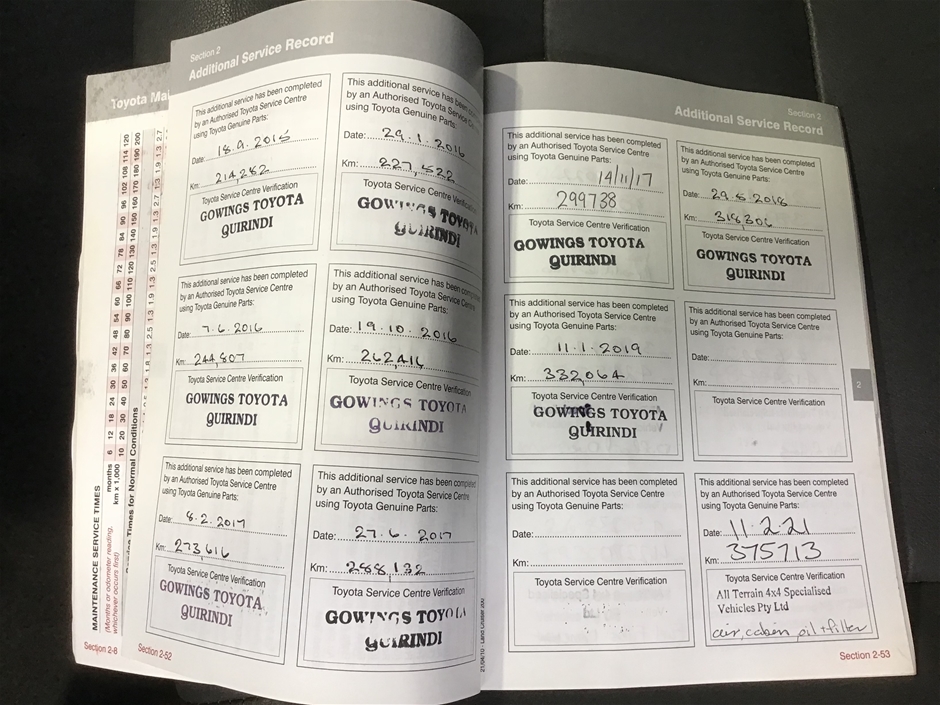 Section 2
Additional Service Record
This additional service has been completed
by an Authorised Toyota Service Centre
using Toyota Genuine Parts:
Date: 18.9.2015
Km: 214282
Toyota Service Centre Verification
GOWINGS TOYOTA
QUIRINDI
This additional service has been
by an Authorised Toyota Service
using Toyota Genuine Parts:
Date: 29.1.2016
Km: 227,522
Toyota Service Centre
GOWINGS TOYOTA
QUIRINDI
This additional service has been completed
by an Authorised Toyota Service Centre
using Toyota Genuine Parts:
Date: 7.6.2016
Km: 244,807
Toyota Service Centre Verification
GOWINGS TOYOTA
QUIRINDI
This additional service has been
by an Authorised Toyota Service Centre
using Toyota Genuine Parts:
Date: 19.10.2016
Km: 262,414
Toyota Service Centre Verification
GOWINGS TOYOTA
QUIRINDI
This additional service has been completed
by an Authorised Toyota Service Centre
using Toyota Genuine Parts:
Date: 8.2.2017
Km: 273,616
Toyota Service Centre Verification
GOWINGS TOYOTA
QUIRINDI
This additional service has been completed
by an Authorised Toyota Service Centre
using Toyota Genuine Parts:
Date: 27.6.2017
Km: 288,132
Toyota Service Centre Verification
GOWINGS TOYOTA
QUIRINDI
Section 2-52
Section 2
Additional Service Record
This additional service has been completed
by an Authorised Toyota Service Centre
using Toyota Genuine Parts:
Date: 14/11/17
Km: 299738
Toyota Service Centre Verification
GOWINGS TOYOTA
QUIRINDI
This additional service has been completed
by an Authorised Toyota Service Centre
using Toyota Genuine Parts:
Date: 29.8.2018
Km: 318,306
Toyota Service Centre Verification
GOWINGS TOYOTA
QUIRINDI
This additional service has been completed
by an Authorised Toyota Service Centre
using Toyota Genuine Parts:
Date: 11.1.2019
Km: 332,064
Toyota Service Centre Verification
GOWINGS TOYOTA
QUIRINDI
This additional service has been completed
by an Authorised Toyota Service Centre
using Toyota Genuine Parts:
Date:
Km:
Toyota Service Centre Verification
2
This additional service has been completed
by an Authorised Toyota Service Centre
using Toyota Genuine Parts:
Date:
Km:
Toyota Service Centre Verification
This additional service has been completed
by an Authorised Toyota Service Centre
using Toyota Genuine Parts:
Date: 11.2.21
Km: 375713
Toyota Service Centre Verification
All Terrain 4x4 Specialised
Vehicles Pty Ltd
air, caben oil + filter
Section 2-53
Toyota Mai
MAINTENANCE SERVICE TIMES
(Months or odometer reading,
whichever occurs first)
months 6 12 18 24 30 36 42 48 54 60 66 72 78 84 90 96 102 108 114 120
km x 1,000 10 20 30 40 50 60 70 80 90 100 110 120 130 140 150 160 170 180 190 200
Times for Normal Conditions
Section 2-8